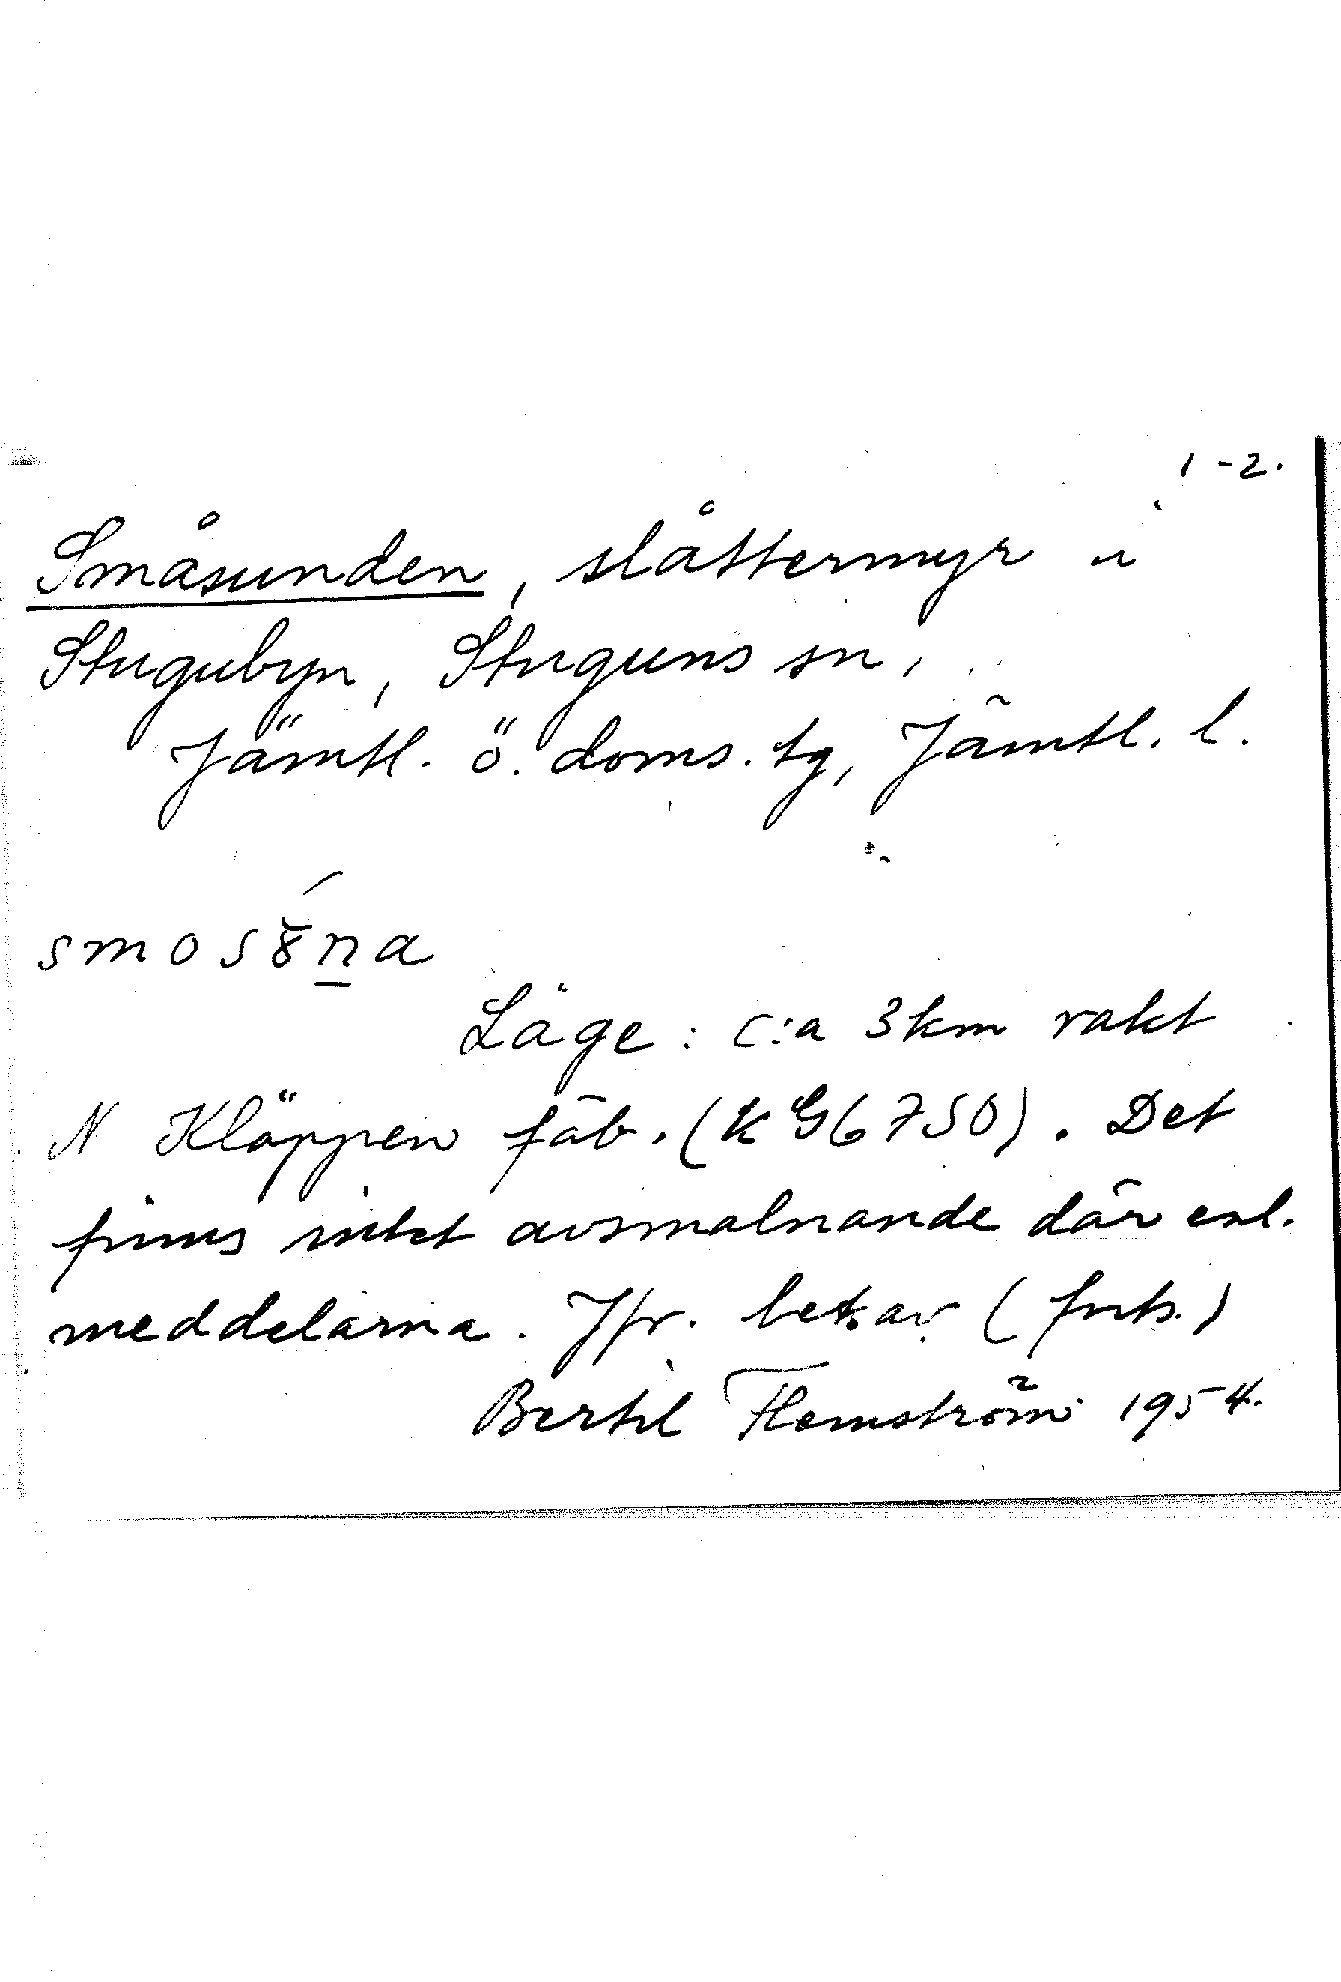 1-2.
Småsunden, slåttermyr i
Stugubyn, Stuguns sn,
Jämtl. ö. doms. tg, Jämtl. l.
Läge: c:a 3km rakt
N Kläppen fäb. (KG6750). Det
finns intet avsmalnande där enl.
meddelarna. Jfr. bet. av (forts.)
Bertil Flemström 1954.